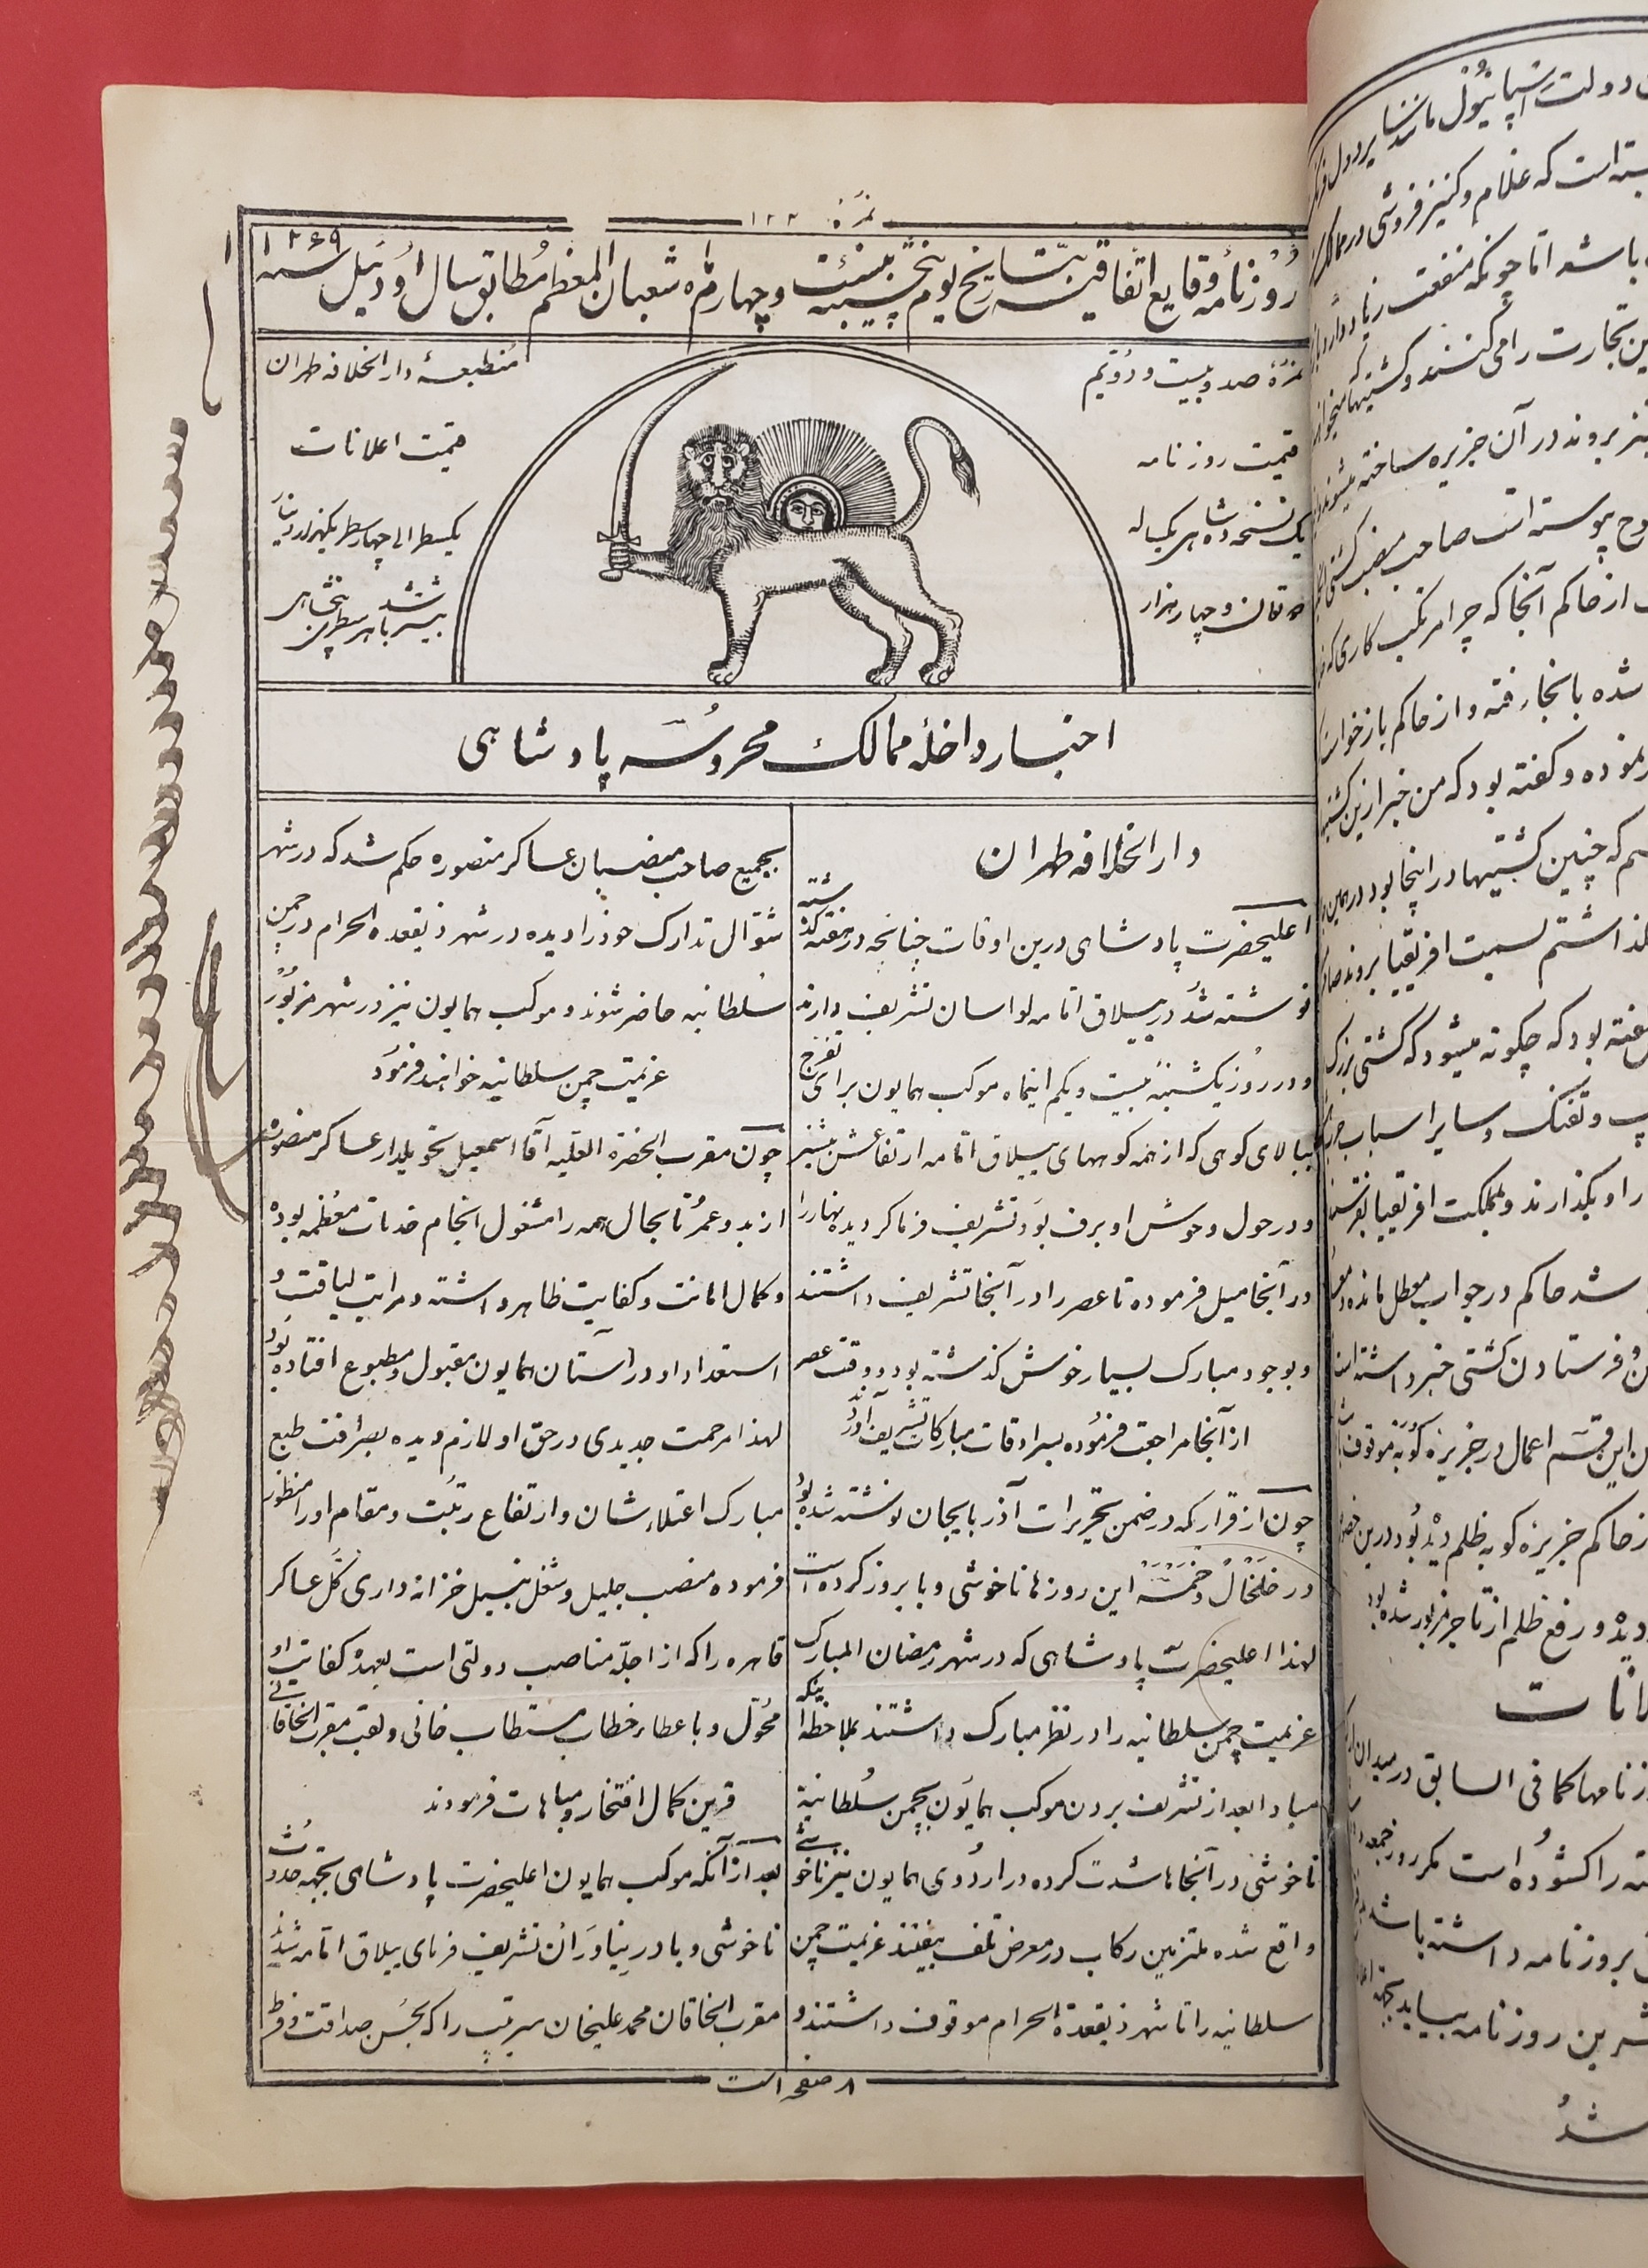 نمرهٔ ۱۲۲
روزنامه وقایع اتفاقیه بتاریخ یوم پنجشنبه بیست و چهارم شهر شعبان المعظم مطابق سال اودئیل سنه ۱۲۶۹
نمرهٔ صد و بیست و دویم
قیمت روزنامه
یک نسخه ده شاهی یکساله
دو تومان و چهار هزار
منطبعهٔ دار الخلافه طهران
قیمت اعلانات
یکسطر الی چهار سطر یکهزار دینار
بیشتر باشد هر سطری پنجشاهی
اخبار داخلهٔ ممالک محروسه پادشاهی
دار الخلافه طهران
اعلیحضرت پادشاهی درین اوقات چنانچه در هفته گذشته
نوشته شد در ییلاق امامه لواسان تشریف دارند
و در روز یکشنبه بیست و یکم اینماه موکب همایون برای تفرج
ببالای کوهی که از همه کوههای ییلاق امامه ارتفاعش بیشتر
و در حول و حوش او برف بود تشریف فرما گردیده نهار را
در آنجا میل فرموده تا عصر را در آنجا تشریف داشتند
و بوجود مبارک بسیار خوش گذشته بود و وقت عصر
از آنجا مراجعت فرموده بسرادقات مبارکات تشریف آوردند
چون از قراریکه در ضمن تحریرات آذربایجان نوشته شده بود
در خلخال و خمسه این روزها ناخوشی وبا بروز کرده است
لهذا اعلیحضرت پادشاهی که در شهر رمضان المبارک
عزیمت چمن سلطانیه را در نظر مبارک داشتند بملاحظه اینکه
مبادا بعد از تشریف بردن موکب همایون بچمن سلطانیه
ناخوشی در آنجاها شدت کرده در اردوی همایون نیز ناخوشی
واقع شده ملتزمین رکاب در معرض تلف بیفتند عزیمت چمن
سلطانیه را تا شهر ذیقعدة الحرام موقوف داشتند و
بجمیع صاحب منصبان عساکر منصوره حکم شد که در شهر
شوال تدارک خود را دیده در شهر ذیقعده الحرام در چمن
سلطانیه حاضر شوند و موکب همایون نیز در شهر مزبور
عزیمت چمن سلطانیه خواهند فرمود
چون مقرب الحضرة العلیه آقا اسمعیل تحویلدار عساکر منصوره
از بدو عمر تا بحال همه را مشغول انجام خدمات معظمه بوده
و کمال امانت و کفایت ظاهر داشته و مراتب لیاقت و
استعداد او در آستان همایون مقبول و مطبوع افتاده بود
لهذا مرحمت جدیدی در حق او لازم دیده بصرافت طبع
مبارک اعتلاء شان و ارتفاع رتبت و مقام او را منظور
فرموده منصب جلیل و شغل نبیل خزانه داری کل عساکر
قاهره را که از اجله مناصب دولتی است بعهده کفایت او
محول و باعطاء خطاب مستطاب خانی و لقب مقرب الخاقانی
قرین کمال افتخار و مباهات فرمودند
بعد از آنکه موکب همایون اعلیحضرت پادشاهی بجهه حدوث
ناخوشی وبا در نیاوران تشریف فرمای ییلاق امامه شدند
مقرب الخاقان محمد علیخان سرتیپ را که بحسن صداقت و فرط
۸ صفحه است
دولت اسپانیول مانند سایر دول
است که غلام و کنیز فروشی در ممالک
باشد اما چونکه منفعت زیاد دارد
تجارت را می کنند و کشتیها
بروند در آن جزیره ساخته میشوند
پیوسته است صاحب منصب کشتی
از حاکم آنجا که چرا مرتکب کاری که
شده بآنجا رفته و از حاکم بازخواست
نموده و گفته بود که من خبر ازین کشتیها
که چنین کشتیها در اینجا بود در همین
گذاشتم بسمت افریقیا بروند
گفته بود که چگونه میشود که کشتی بزرگ
و تفنگ و سایر اسباب
را و بگذارند و بمملکت افریقیا بفرستند
شد حاکم در جواب معطل مانده
و فرستادن کشتی خبر داشته است
این قسم اعمال در جزیره کوبه موقوف
حاکم جزیره کوبه ظلم دیده بود درین
دیده و رفع ظلم از تاجر مزبور شده بود
روزنامها کما فی السابق در میدان
را گشوده است مگر روز جمعه
بروزنامه داشته باشد
روزنامه بیاید بجهه
شد